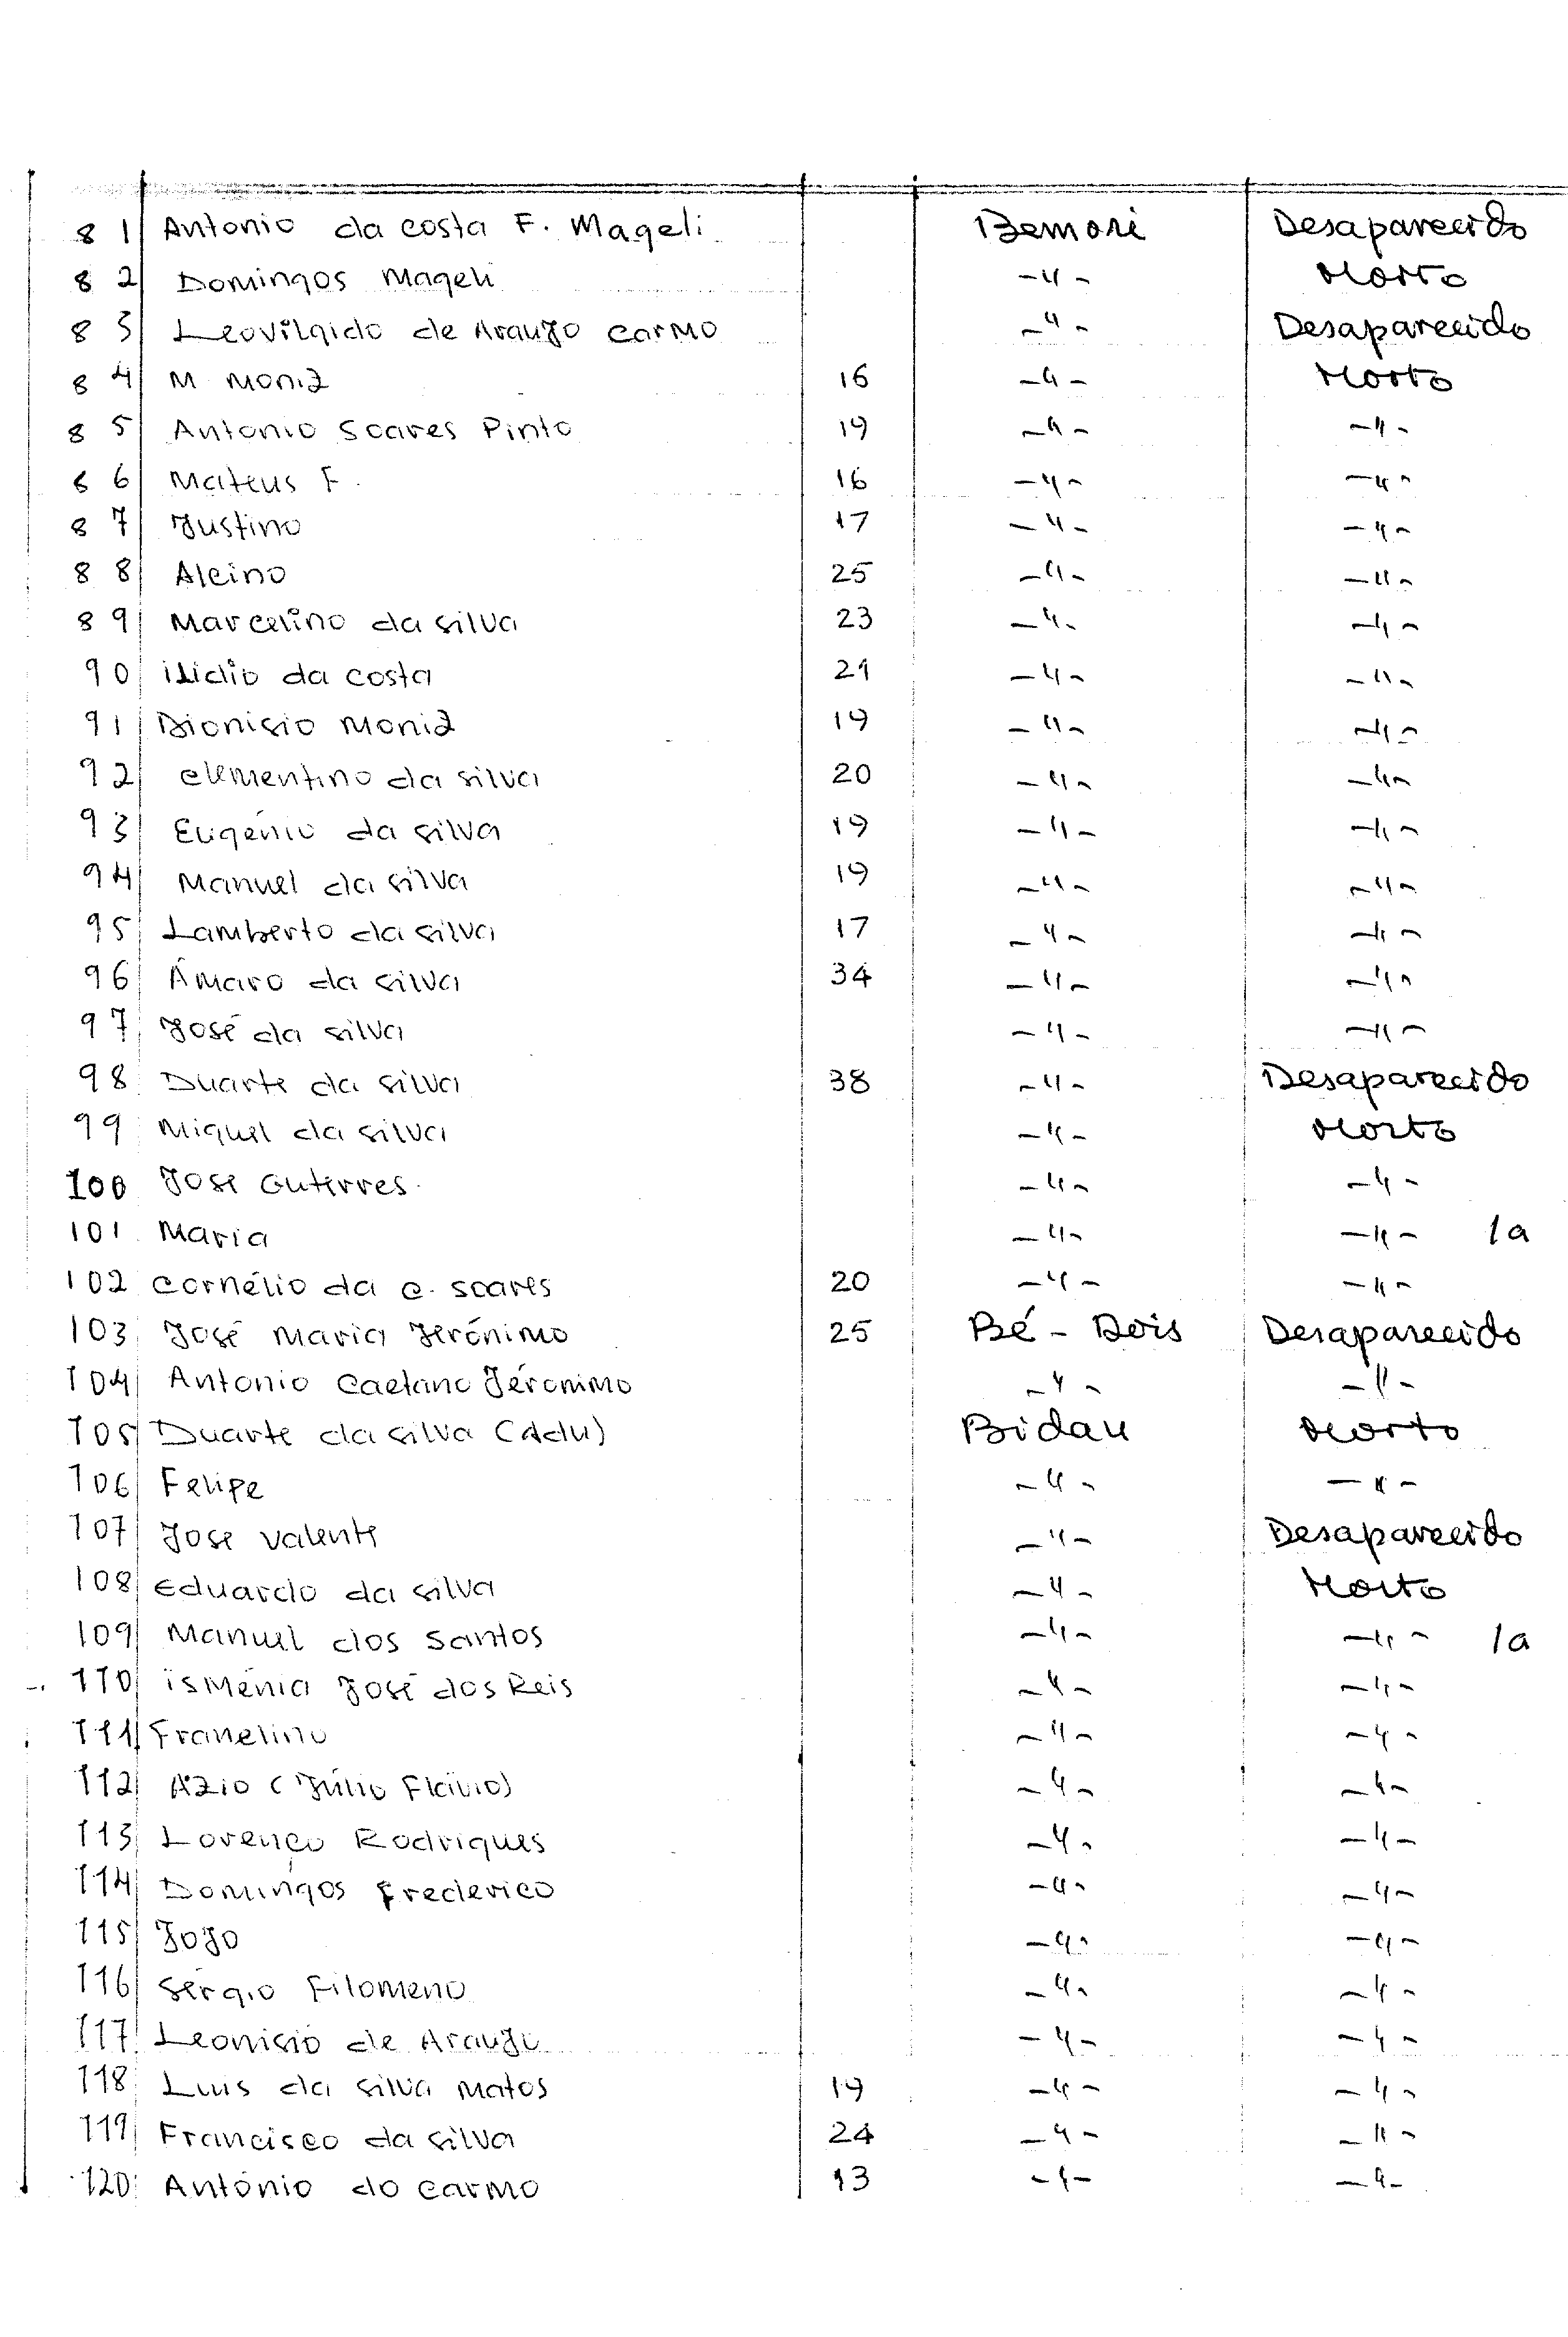 81 Antonio da costa F. Mageli Bemori Desaparecido
82 Domingos Mageli -"- Morto
83 Leovilgido de Araujo Carmo -"- Desaparecido
84 M. Moniz 16 -"- Morto
85 Antonio Soares Pinto 19 -"- -"-
86 Mateus F. 16 -"- -"-
87 Justino 17 -"- -"-
88 Alcino 25 -"- -"-
89 Marcelino da silva 23 -"- -"-
90 ilidio da costa 21 -"- -"-
91 Dionisio Moniz 19 -"- -"-
92 clementino da silva 20 -"- -"-
93 Eugénio da silva 19 -"- -"-
94 Manuel da silva 19 -"- -"-
95 Lamberto da silva 17 -"- -"-
96 Ámaro da silva 34 -"- -"-
97 José da silva -"- -"-
98 Duarte da silva 38 -"- Desaparecido
99 Miguel da silva -"- Morto
100 José Guterres. -"- -"-
101 Maria -"- -"- 1a
102 cornélio da c. soares 20 -"- -"-
103 José Maria Jerónimo 25 Bé-Dois Desaparecido
104 Antonio Caetano Jéronimo -"- -"-
105 Duarte da silva (Adu) Bidau Morto
106 Felipe -"- -"-
107 Jose valente -"- Desaparecido
108 Eduardo da silva -"- Morto
109 Manuel dos Santos -"- -"- 1a
110 isménia José dos Reis -"- -"-
111 Francelino -"- -"-
112 Azio (Júlio Flávio) -"- -"-
113 Lorenço Rodrigues -"- -"-
114 Domingos Frederico -"- -"-
115 Jojo -"- -"-
116 Sérgio Filomeno -"- -"-
117 Leonisio de Araujo -"- -"-
118 Luis da silva Matos 19 -"- -"-
119 Francisco da silva 24 -"- -"-
120 António do carmo 13 -"- -"-